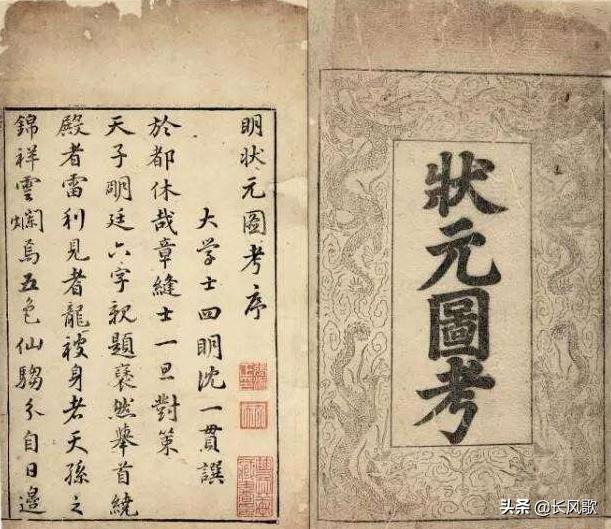 狀元圖考
明狀元圖考序
大学士四明沈一貫譔
於都休哉章縫士一旦對策
天子明廷六字親題裒然舉首繞
殿者雷利見者龍被身者天孫之
錦祥雲爛焉五色仙騶分自日邊
头条 @长风歌